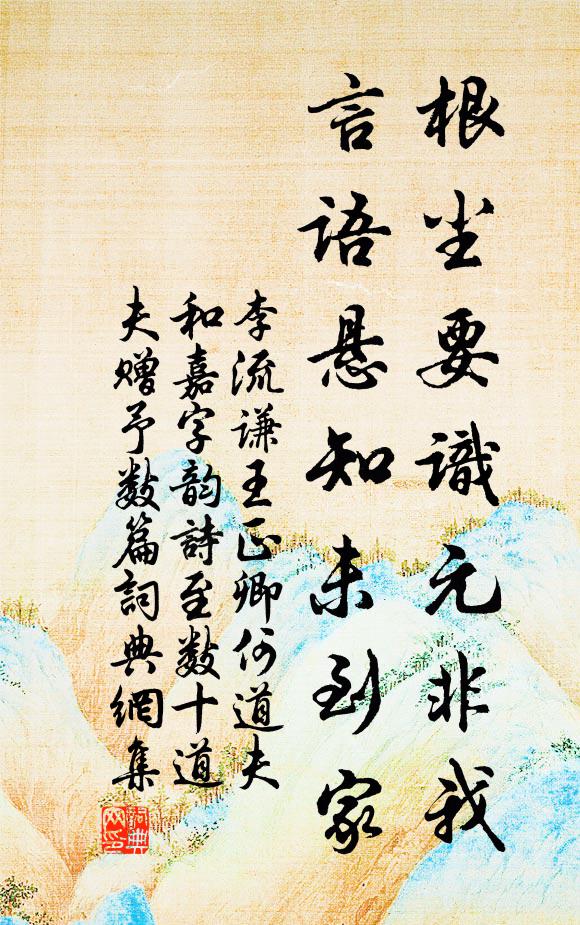 根尘要識元非我
言语悬知未到家
李流谦王正卿何道夫
和嘉字韵詩至数十道
夫赠予数篇詞典網集
詞典
网印